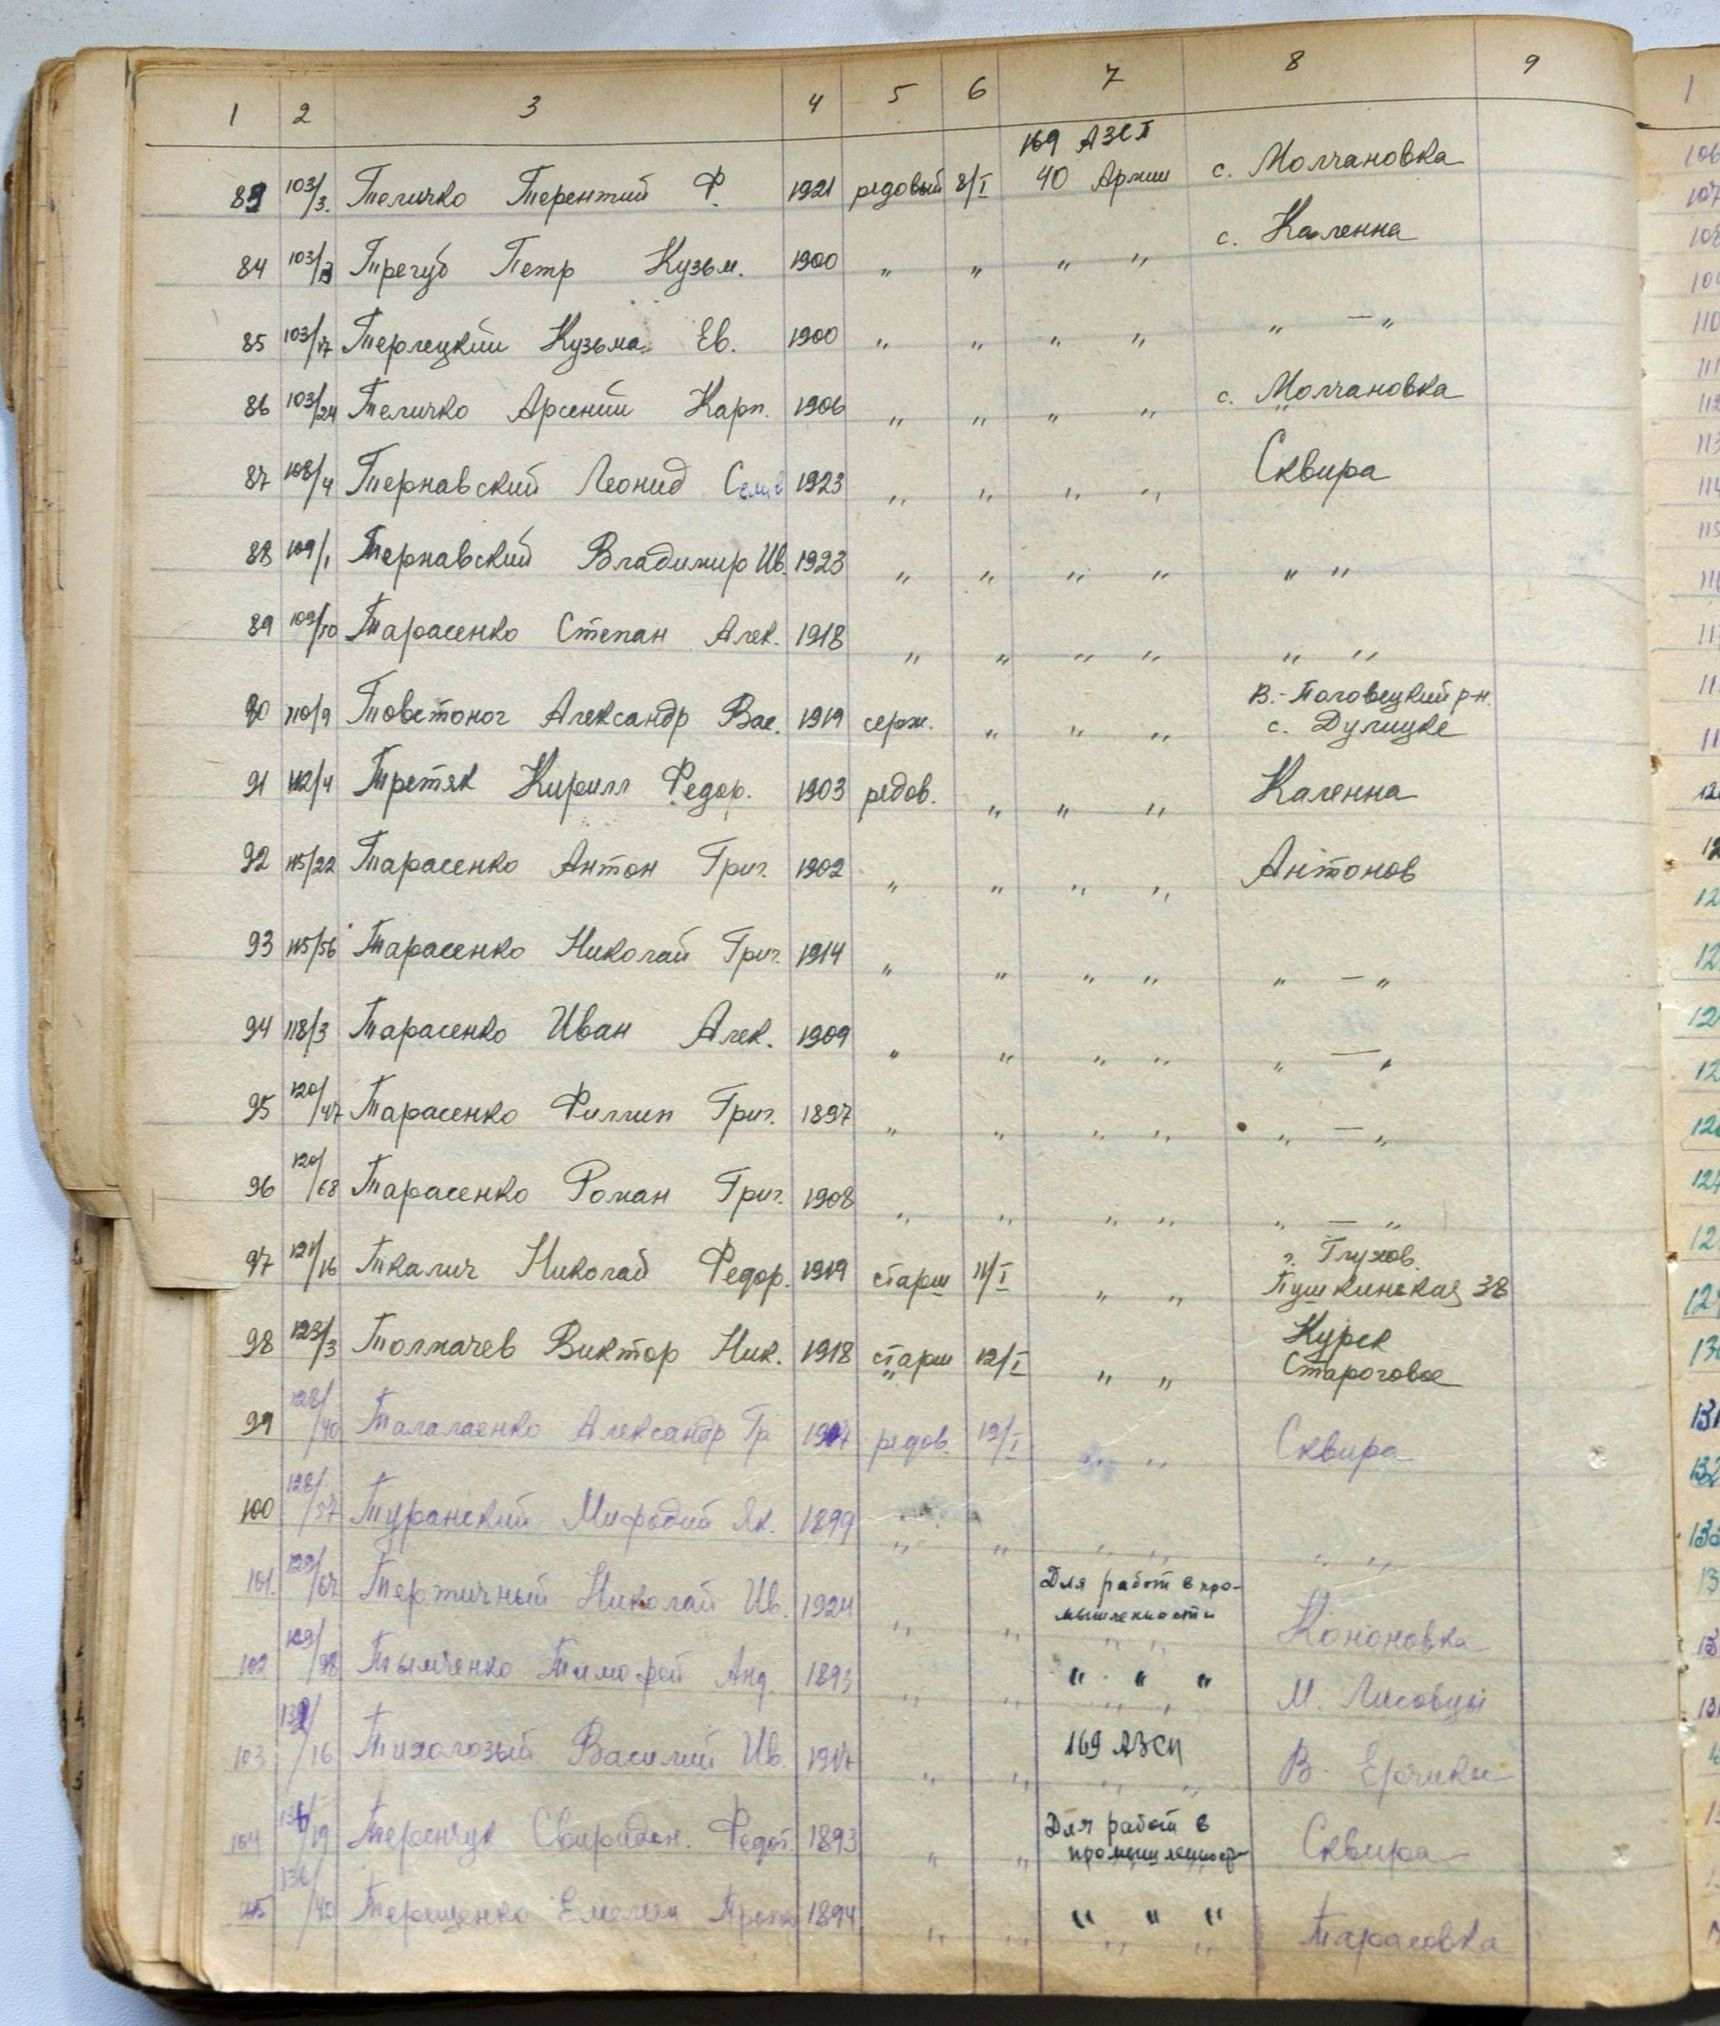 1 2 3 4 5 6 7 8 9
169 АЗСП
83 103/3. Теличко Терентий Ф. 1921 рядовый 8/I 40 Армии с. Молчановка
84 103/13 Трегуб Петр Кузьм. 1900 " " " " с. Каленна
85 103/17 Терлецкий Кузьма Ев. 1900 " " " " " — "
86 103/24 Теличко Арсений Карп. 1906 " " " " с. Молчановка
87 108/4 Тернавский Леонид Селив 1923 " " " " Сквира
88 109/1 Тернавский Владимир Ив. 1923 " " " " " "
89 109/50 Тарасенко Степан Алек. 1918 " " " " " "
90 110/9 Товстоног Александр Вас. 1919 серж. " " " В.-Половецкий р-н.
с. Дулицке
91 112/4 Третяк Кирилл Федор. 1903 рядов. " " " Каленна
92 115/22 Тарасенко Антон Григ. 1902 " " " " Антонов
93 115/56 Тарасенко Николай Григ. 1914 " " " " " — "
94 118/3 Тарасенко Иван Алек. 1909 " " " " " — "
95 120/47 Тарасенко Филлип Григ. 1897 " " " " " — "
96 120/68 Тарасенко Роман Григ. 1908 " " " " " — "
97 121/16 Ткалич Николай Федор. 1919 старш 11/I " " г. Глухов.
Пушкинская 38
98 123/3 Толмачев Виктор Ник. 1918 старш 12/I " " Курск
Староговое
99 128/40 Талалаенко Александр Гр 1917 рядов. 19/I " " Сквира
100 128/57 Туранский Мифодий Як. 1899 " " " " " "
101. 129/67 Термичный Николай Ив. 1924 " " Для работ в про-
мышленности Кононовка
102 129/98 Тымченко Тимофей Анд. 1893 " " " " " М. Лисовцы
103 132/16 Тихолозый Василий Ив. 1917 " " 169 АЗСП В. Ерчики
104 136/19 Теренчук Свиридон. Федот. 1893 " " Для работ в
промышленост- Сквира
105 136/40 Терещенко Емельян 1894 " " " " " Тарасовка